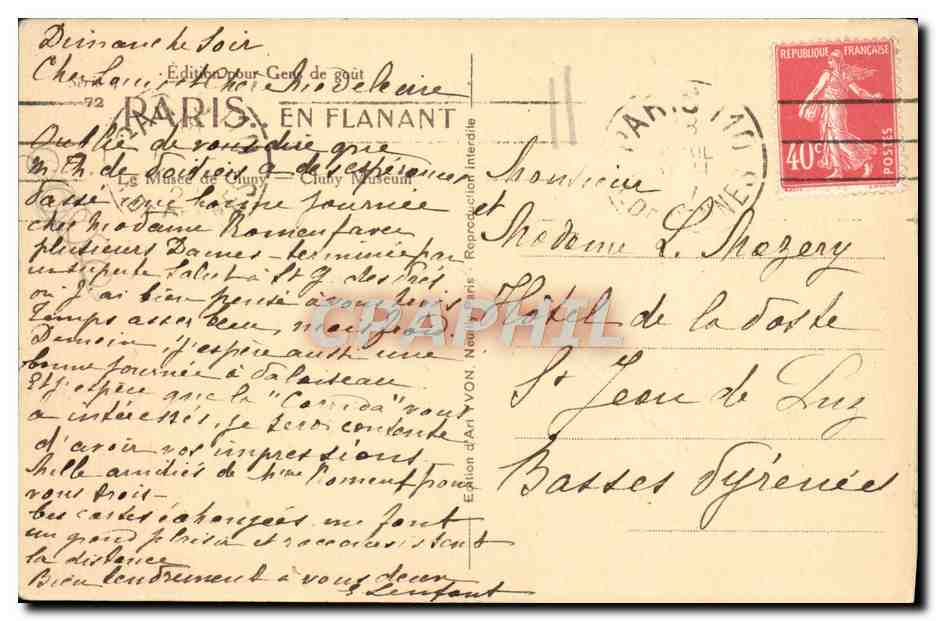 Dimanche Soir
Édition pour Gens de goût
72
PARIS EN FLANANT
Oublié de vous dire que
M. Th. de
Le Musée de Cluny Cluny Museum
passé une bonne journée
chez Madame Romenf avec
plusieurs Dames - terminée par
un salut à St G. des Prés
où j'ai bien pensé à vous trois
Temps assez beau, mais froid
Demain, j'espère aussi une
bonne journée à Palaiseau
Et j'espère que la "Corrida" vous
a intéressés, je serai contente
d'avoir vos impressions.
Mille amitiés de Mme Romenf pour
vous trois -
Les cartes échangées me font
un grand plaisir et raccourcissent
la distance
Bien tendrement à vous deux
Lenfant
Edition d'Art YVON, Paris - Reproduction interdite
REPUBLIQUE FRANÇAISE
40c
POSTES
PARIS
Monsieur
et
Madame L. Mazery
Hotel de la Poste
St Jean de Luz
Basses Pyrénées
CPAPHIL